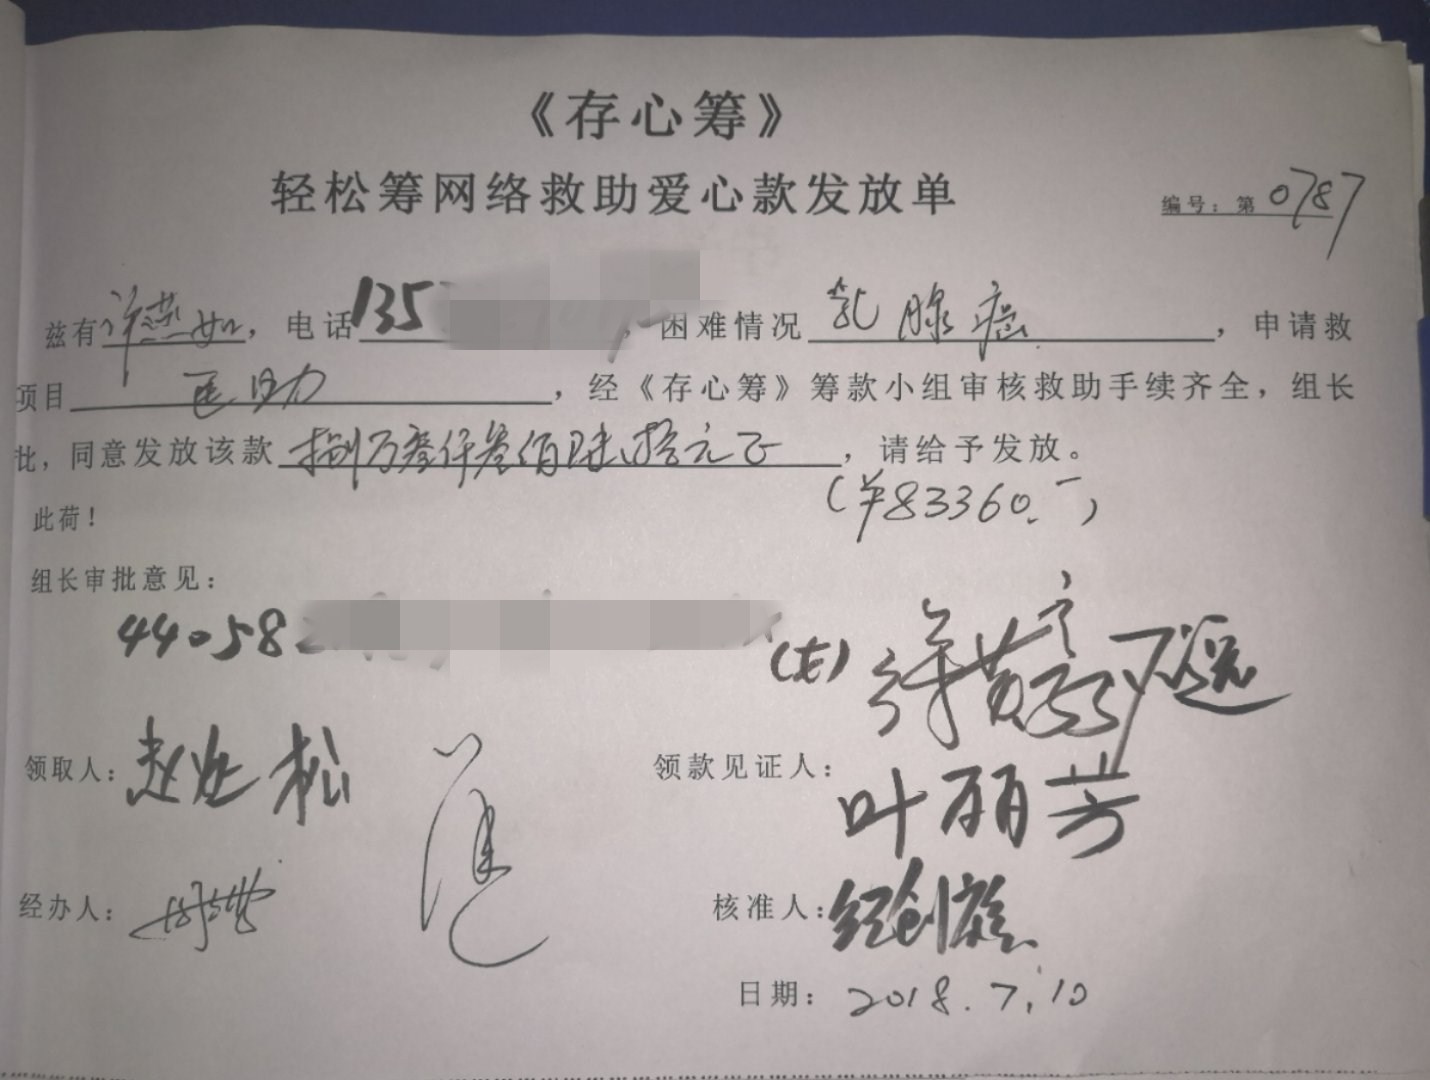 《存心筹》
轻松筹网络救助爱心款发放单
编号：第0787
兹有许燕如，电话135，困难情况乳腺癌，申请救
项目医助，经《存心筹》筹款小组审核救助手续齐全，组长
批，同意发放该款捌万叁仟叁佰陆拾元正，请给予发放。
(￥83360.-)
此荷！
组长审批意见：
44058
(夫)
领取人：赵进松
领款见证人：
叶丽芳
经办人：
核准人：
日期：2018.7.10